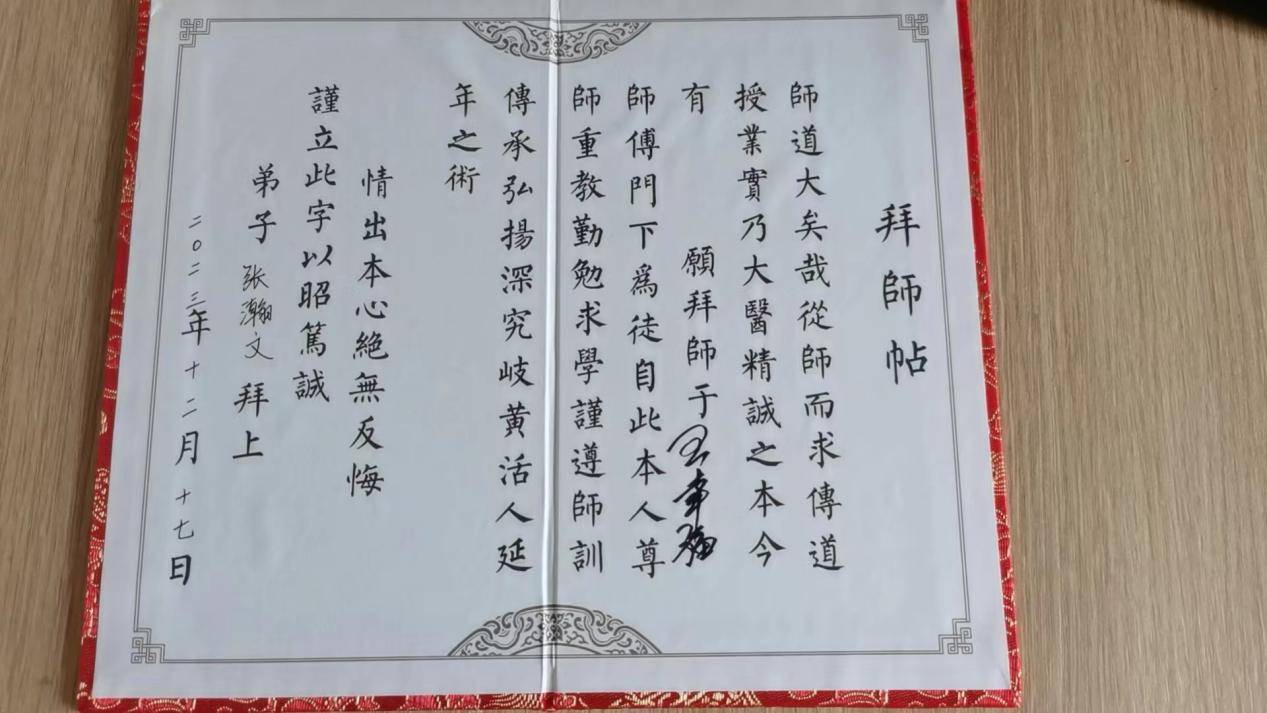 拜師帖
師道大矣哉從師而求傳道
授業實乃大醫精誠之本今
有 願拜師于
師傅門下為徒自此本人尊
師重教勤勉求學謹遵師訓
傳承弘揚深究岐黄活人延
年之術
情出本心絕無反悔
謹立此字以昭篤誠
弟子张瀚文拜上
二〇二三年十二月十七日